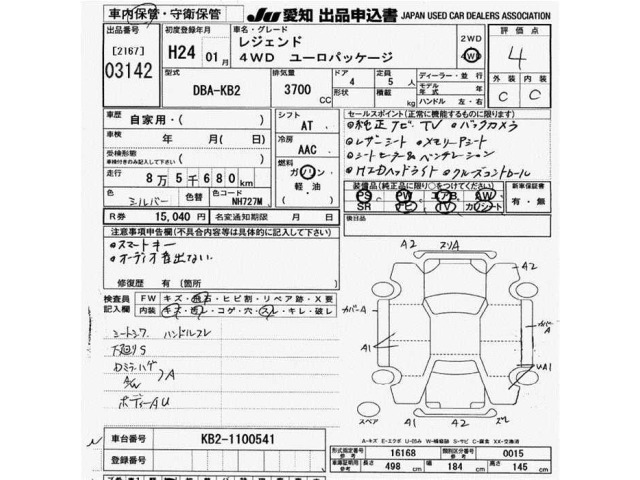 車内保管・守衛保管 JU 愛知 出品申込書 JAPAN USED CAR DEALERS ASSOCIATION
出品番号 初度登録年月 車名・グレード 評価点
[2167] H24 01月 レジェンド 2WD 4
03142 4WD ユーロパッケージ 4WD
型式 排気量 ドア 定員 ディーラー・並行 外装 内装
DBA-KB2 3700CC 4 5人 モデル年式 年 C C
形状 積載 kg ハンドル 左・右
車歴 自家用・( ) シフト AT セールスポイント(正常に機能するものに限ります)
車検 年 月( 日) 冷房 AAC ・純正ナビ TV ・バックカメラ
受検形態 車検付きのみ記入して下さい ( ) ・レザーシート ・メモリーシート
燃料 ガソリン 軽油 ・シートヒーター&ベンチレーション
走行 8万5千680km ・HIDヘッドライト ・クルーズコントロール
色 シルバー 色替 色コード NH727M 装備品(純正品に限り○をつけてください) 新車保証書
PS PW エアB AW 有・無
SR ナビ TV カワシート
R券 15,040円 名変通知期限 月 日 後日品
注意事項申告欄(不具合内容等は具体的に記入して下さい)
・スマートキー
・オーディオ音出ない
修復歴 有(箇所
検査員記入欄 FW キズ・飛石・ヒビ割・リペア跡・X要
内装 キズ・汚レ・コゲ・穴・スレ・キレ・破レ
シートシワ ハンドルスレ
下廻りS
Dミラーハゲ
A/W A
ボディーAU
A2 スリA A2
カバーA カバーA
A1 A1 UA1
スペア A1 A2
A-キズ E-エクボ U-凹み W-補修跡 S-サビ C-腐食 XX-交換済
車台番号 KB2-1100541
登録番号
形式指定番号 参考 16168 類別区分番号 参考 0015
車庫証明用 参考 長さ 498cm 幅 184cm 高さ 145cm